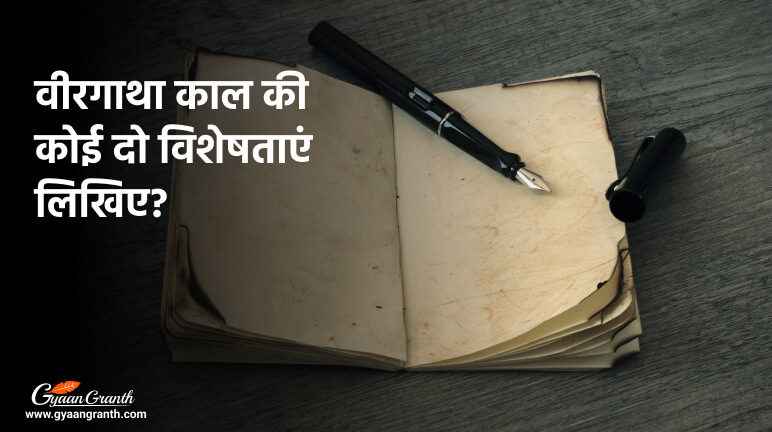 वीरगाथा काल की
कोई दो विशेषताएं
लिखिए?
Gyaan Granth
www.gyaangranth.com